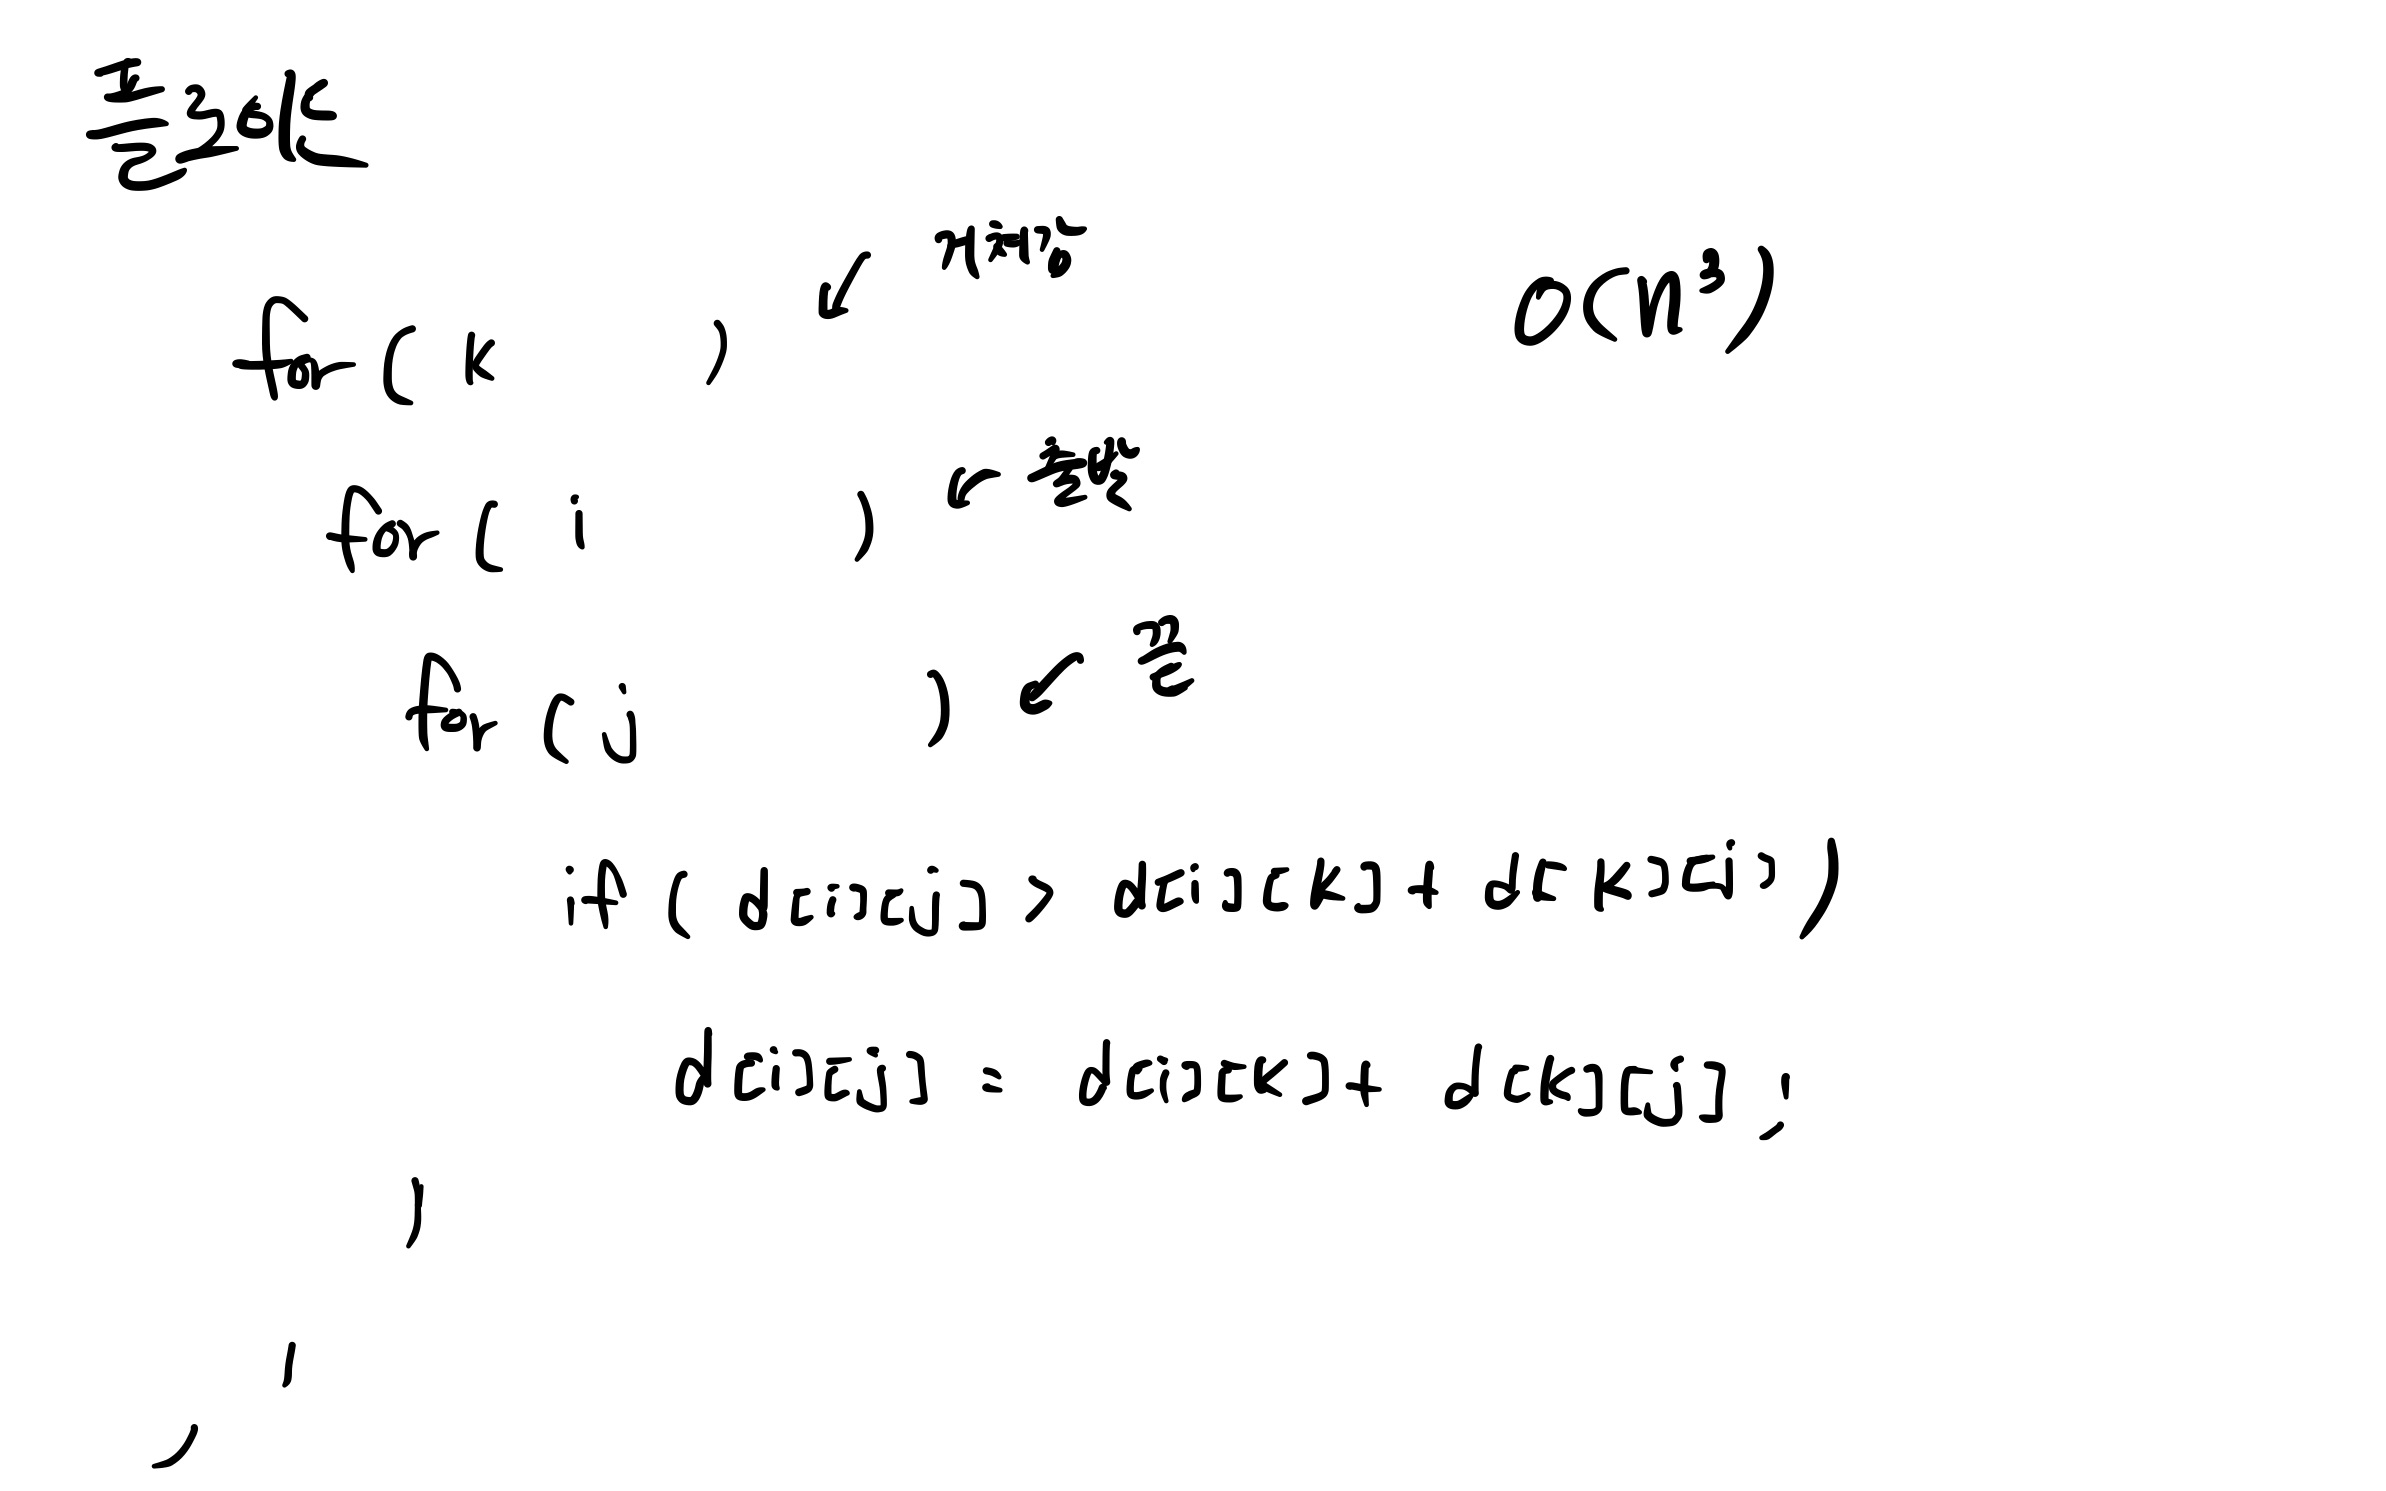 플로이드
거쳐갈
for( k )
O(n³)
출발
for( i )
끝
for( j )
if( d[i][j] > d[i][k] + d[k][j] )
d[i][j] = d[i][k] + d[k][j];
}
}
}